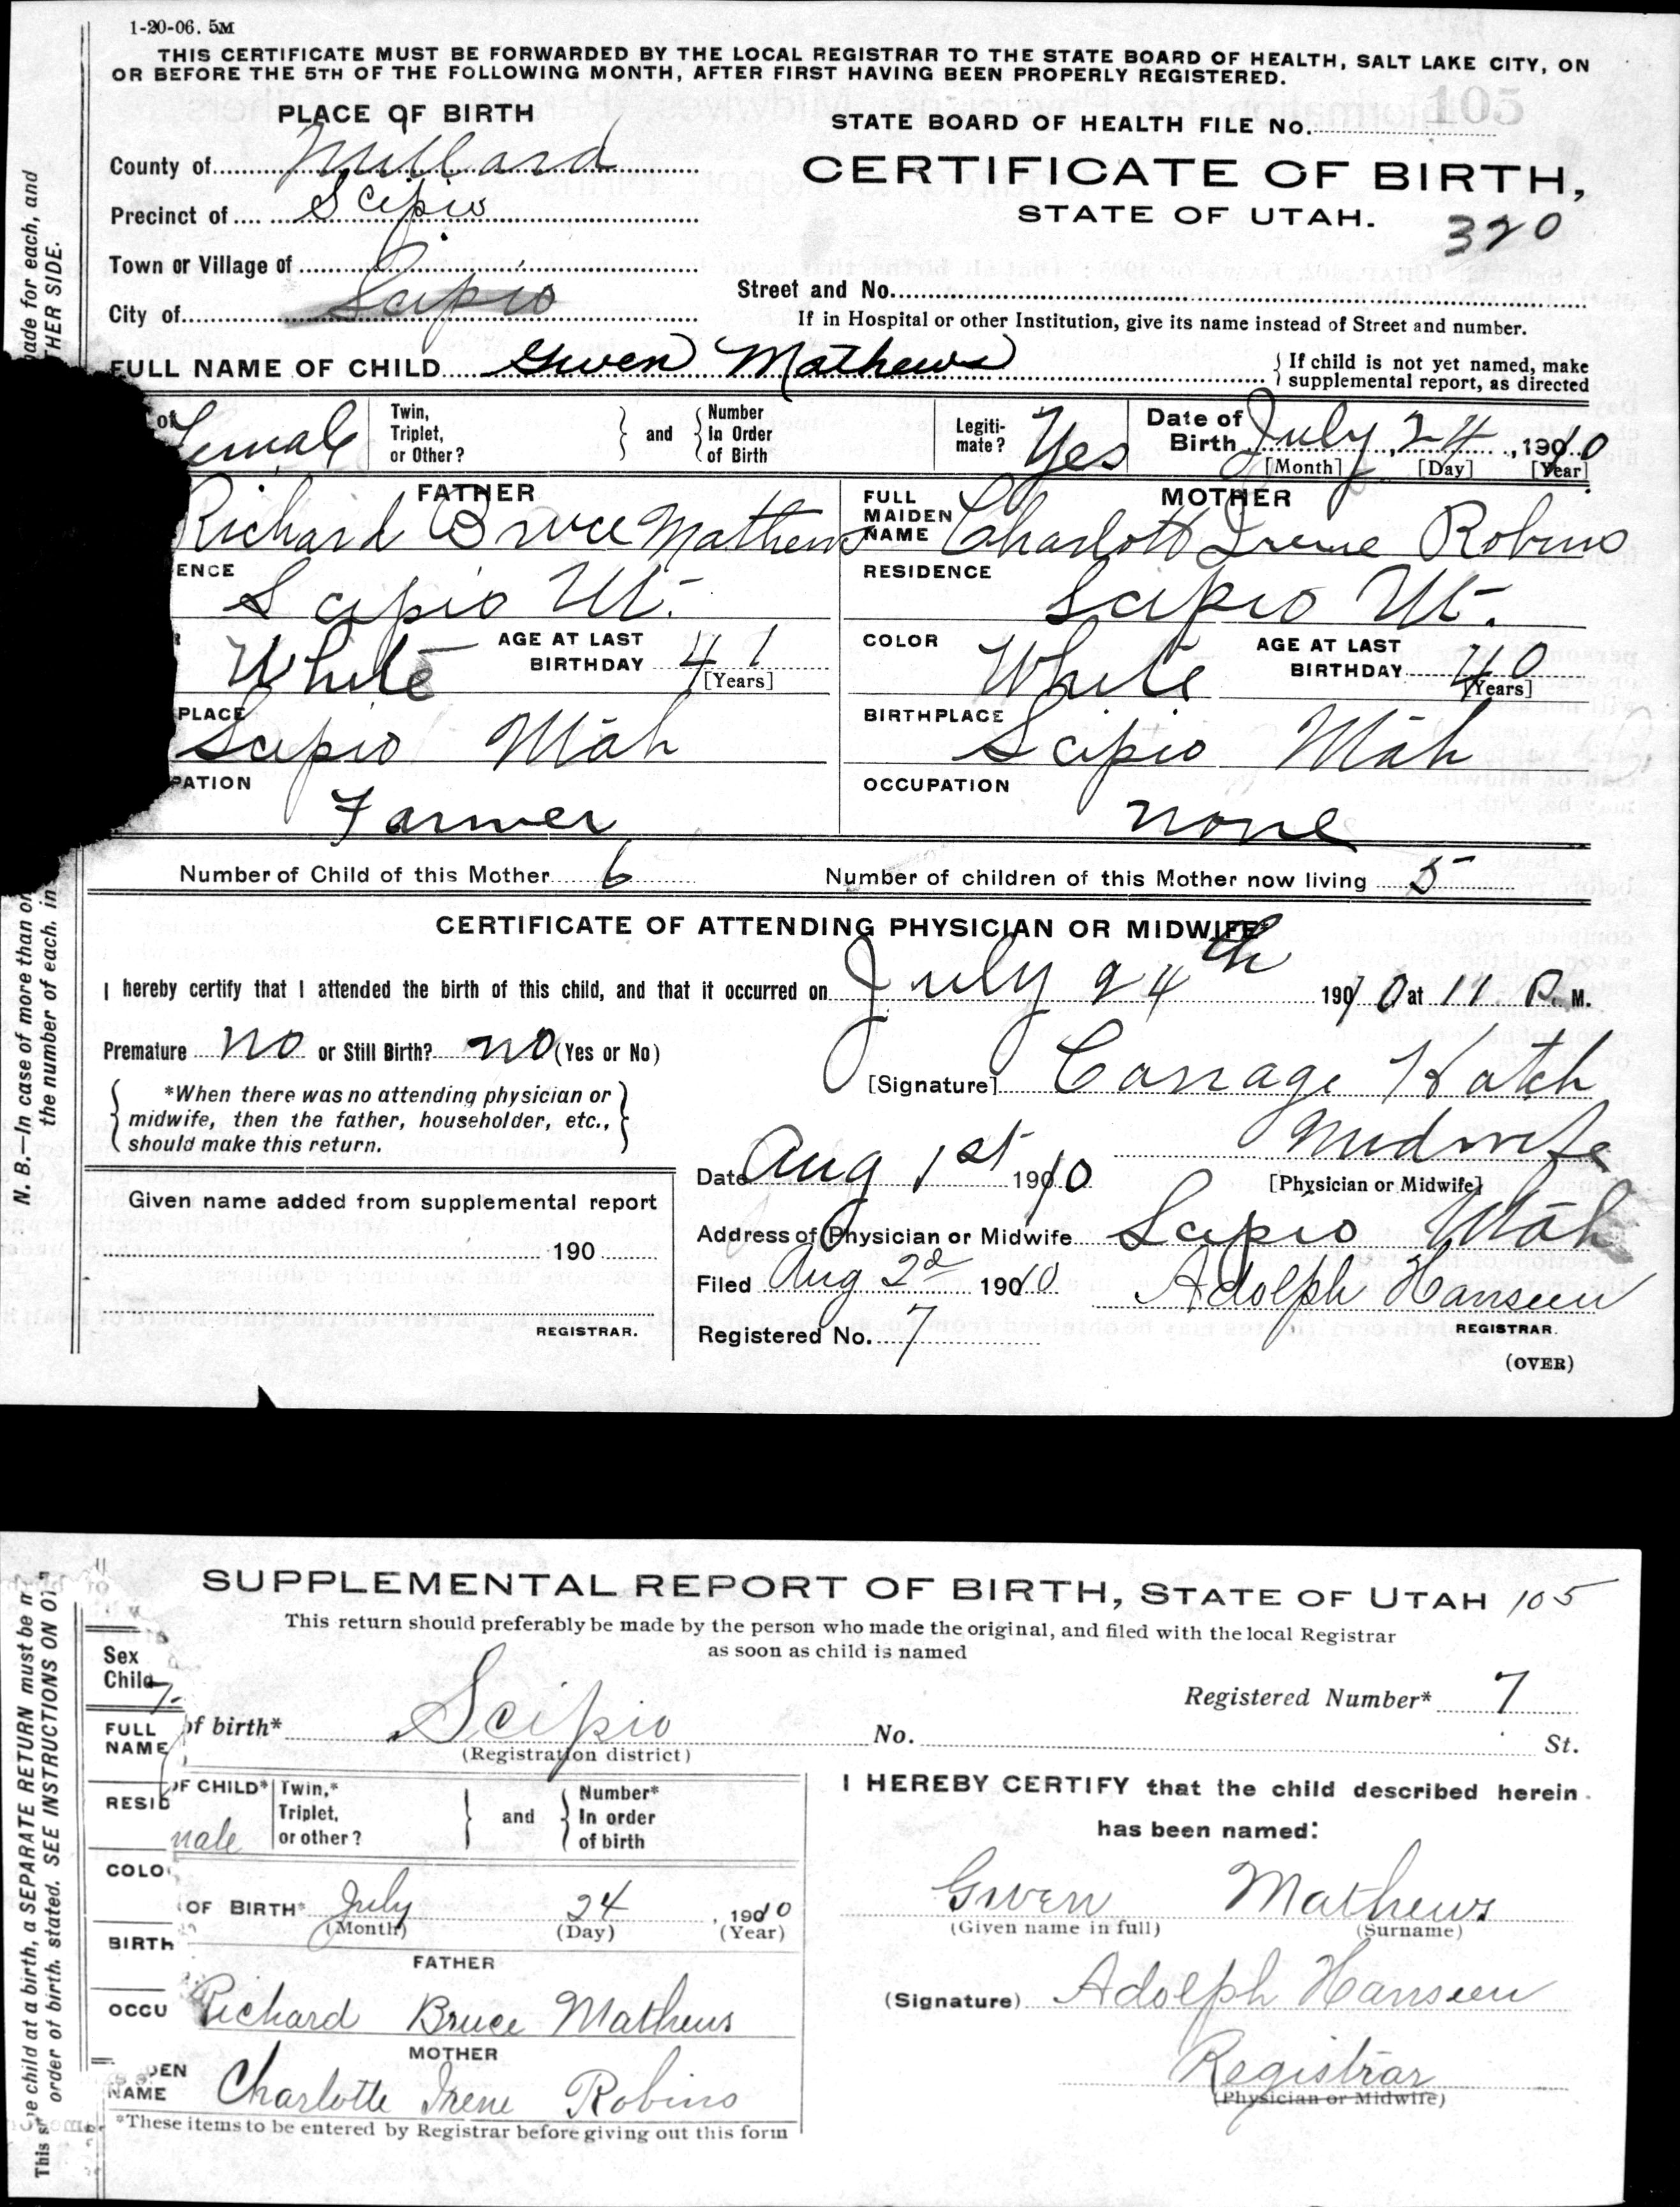 1-20-06. 5M
THIS CERTIFICATE MUST BE FORWARDED BY THE LOCAL REGISTRAR TO THE STATE BOARD OF HEALTH, SALT LAKE CITY, ON
OR BEFORE THE 5TH OF THE FOLLOWING MONTH, AFTER FIRST HAVING BEEN PROPERLY REGISTERED.
PLACE OF BIRTH
County of Millard
Precinct of Scipio
Town or Village of
City of Scipio
STATE BOARD OF HEALTH FILE No. 105
CERTIFICATE OF BIRTH,
STATE OF UTAH.
320
Street and No.
If in Hospital or other Institution, give its name instead of Street and number.
FULL NAME OF CHILD Gwen Mathews
If child is not yet named, make
supplemental report, as directed
of Female
Twin,
Triplet,
or Other?
and
Number
In Order
of Birth
Legiti-
mate? Yes
Date of
Birth July 24, 1910
[Month] [Day] [Year]
FATHER
Richard Bruce Mathews
ENCE
Scipio Ut.
White
AGE AT LAST
BIRTHDAY 41
[Years]
PLACE
Scipio Utah
PATION
Farmer
MOTHER
FULL
MAIDEN
NAME Charlott Irene Robins
RESIDENCE
Scipio Ut.
COLOR White
AGE AT LAST
BIRTHDAY 40
[Years]
BIRTHPLACE
Scipio Utah
OCCUPATION
none
Number of Child of this Mother 6
Number of children of this Mother now living 5
CERTIFICATE OF ATTENDING PHYSICIAN OR MIDWIFE*
I hereby certify that I attended the birth of this child, and that it occurred on July 24th 1910 at 11 P. M.
Premature no or Still Birth? no (Yes or No)
*When there was no attending physician or
midwife, then the father, householder, etc.,
should make this return.
[Signature] Hatch
Midwife
[Physician or Midwife]
Date Aug 1st 1910
Address of Physician or Midwife Scipio Utah
Filed Aug 2d 1910
Adolph Hanseen
REGISTRAR.
Registered No. 7
(OVER)
Given name added from supplemental report
190
REGISTRAR.
N. B.—In case of more than on
the number of each, in
made for each, and
THER SIDE.
SUPPLEMENTAL REPORT OF BIRTH, STATE OF UTAH 105
This return should preferably be made by the person who made the original, and filed with the local Registrar
as soon as child is named
Sex
Child
FULL
NAME
RESID
COLO
BIRTH
OCCU
Registered Number* 7
of birth* Scipio
(Registration district)
No. St.
OF CHILD*
male
Twin,*
Triplet,
or other?
and
Number*
In order
of birth
OF BIRTH* July 24, 1910
(Month) (Day) (Year)
FATHER
Richard Bruce Mathews
MOTHER
DEN
NAME Charlotte Irene Robins
*These items to be entered by Registrar before giving out this form
I HEREBY CERTIFY that the child described herein
has been named:
Gwen Mathews
(Given name in full) (Surname)
(Signature) Adolph Hanseen
Registrar
(Physician or Midwife)
e child at a birth, a SEPARATE RETURN must be m
order of birth, stated. SEE INSTRUCTIONS ON OT